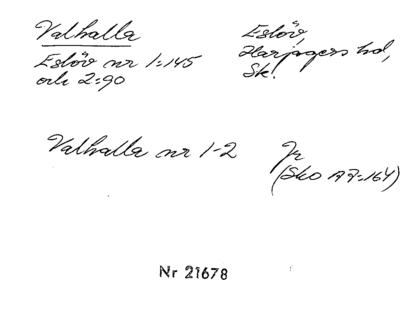 Valhalla
Eslöv nr 1:145
och 2:90
Eslöv,
Harjagers hd,
Sk.
Valhalla nr 1-2
Jr
(Sko A7:164)
Nr 21678